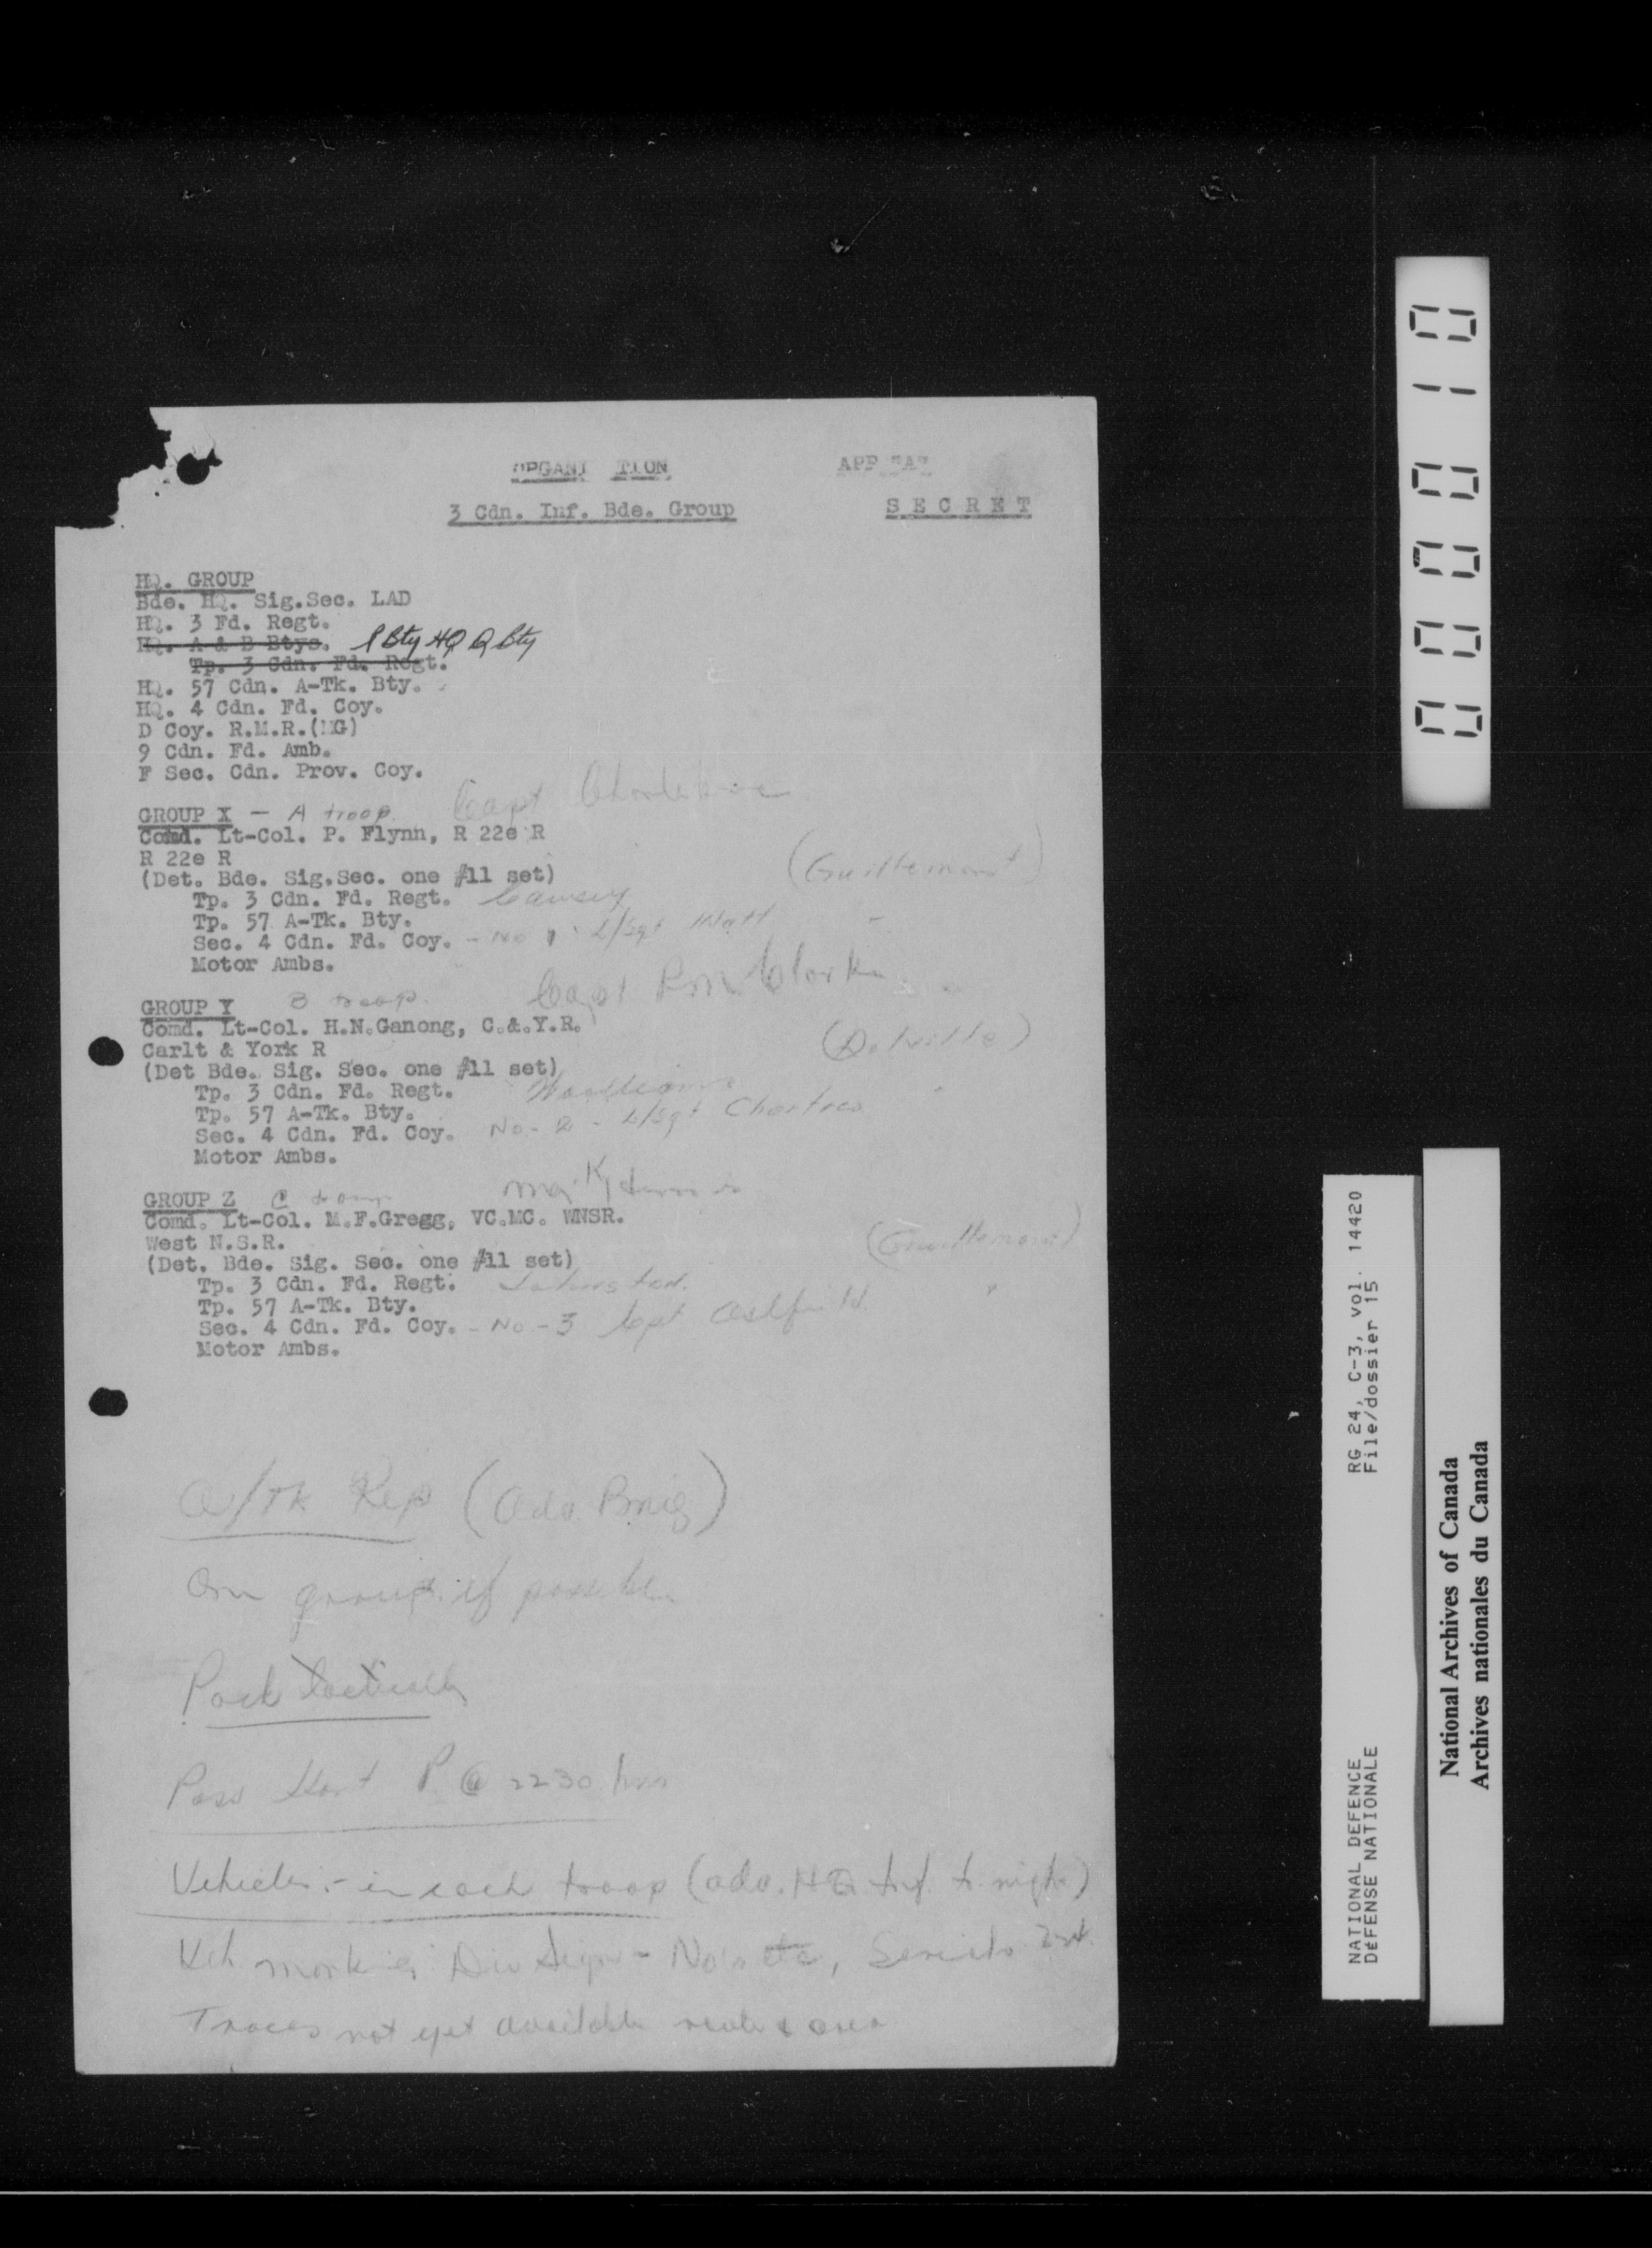 ORGANI TION
3 Cdn. Inf. Bde. Group
SECRET
HQ. GROUP
Bde. HQ. Sig.Sec. LAD
HQ. 3 Fd. Regt.
HQ. A & B Btys. Bty HQ Q Bty
Tp. 3 Cdn. Fd. Regt.
HQ. 57 Cdn. A-Tk. Bty.
HQ. 4 Cdn. Fd. Coy.
D Coy. R.M.R.(MG)
9 Cdn. Fd. Amb.
F Sec. Cdn. Prov. Coy.
GROUP X - A troop. Capt
Comd. Lt-Col. P. Flynn, R 22e R
R 22e R
(Guillemont)
(Det. Bde. Sig.Sec. one #11 set)
Tp. 3 Cdn. Fd. Regt.
Tp. 57 A-Tk. Bty.
Sec. 4 Cdn. Fd. Coy. - No 1 - L/Sgt Watt
Motor Ambs.
GROUP Y B troop. Capt Clark
Comd. Lt-Col. H.N.Ganong, C.&.Y.R.
Carlt & York R
(Det Bde. Sig. Sec. one #11 set)
Tp. 3 Cdn. Fd. Regt.
Tp. 57 A-Tk. Bty.
Sec. 4 Cdn. Fd. Coy. No - 2 - L/Sgt Chartres
Motor Ambs.
GROUP Z C troop
Comd. Lt-Col. M.F.Gregg, VC.MC. WNSR.
West N.S.R.
(Guillemont)
(Det. Bde. Sig. Sec. one #11 set)
Tp. 3 Cdn. Fd. Regt.
Tp. 57 A-Tk. Bty.
Sec. 4 Cdn. Fd. Coy. - No - 3
Motor Ambs.
A/Tk Rep (Adv. Brig)
On group if possible
Pack tactically
Pass Start P. @ 2230 hrs
Vehicles - in each troop (adv. HQ
Veh Div
Traces not yet available
0000010
RG 24, C-3, vol. 14420
File/dossier 15
NATIONAL DEFENCE
DÉFENSE NATIONALE
National Archives of Canada
Archives nationales du Canada